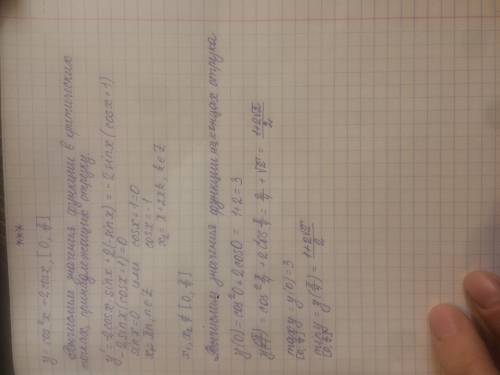 ***
y = cos²x - 2cosx, [0, π/4]
Вычислим значения функции в критических
точках, принадлежащие отрезку.
y' = -2cosx sinx + 2(-sinx) = -2sinx(cosx+1)
-2sinx(cosx+1)=0
sinx=0 или cosx+1=0
cosx=-1
x₂=π+2πk, k∈Z
x₁, x₂ ∉ [0, π/4]
Вычислим значения функции на концах отрезка
y(0) = cos²0 + 2cos0 = 1+2=3
max y = y(0) = 3